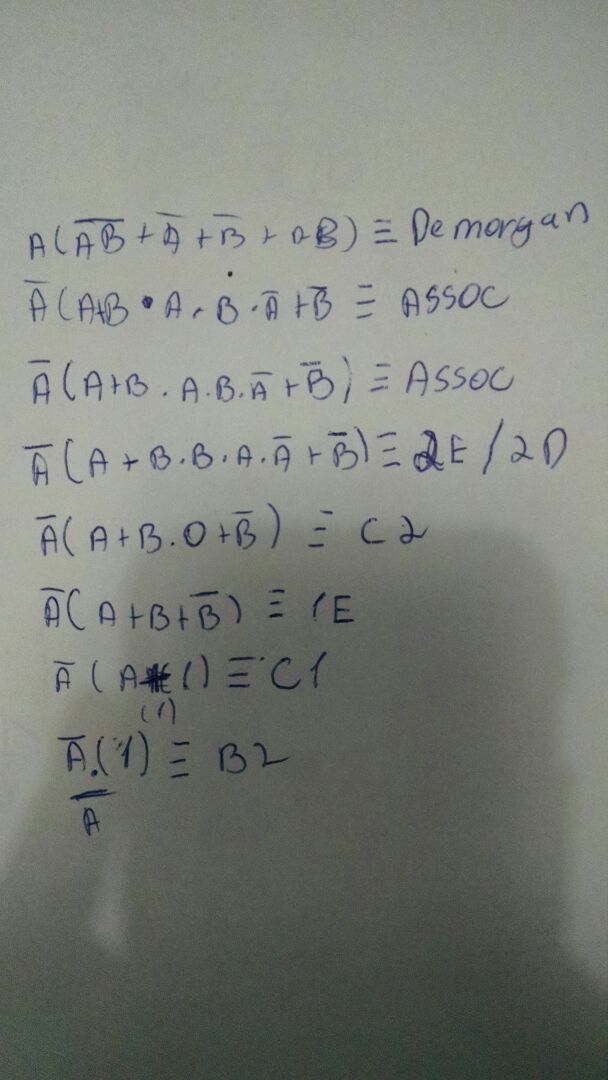 A(A̅B̅ + A̅ + B̅ + AB) ≡ Demorgan
A̅(A+B • A . B . A̅ + B̅ ≡ ASSOC
A̅(A+B . A.B. A̅ + B̅) ≡ ASSOC
A̅(A + B.B.A. A̅ + B̅) ≡ 2E/2D
A̅(A+B.0+B̅) ≡ C2
A̅(A+B+B̅) ≡ 1E
A̅(A+1) ≡ C1
(1)
A̅.(1) ≡ B2
A̅